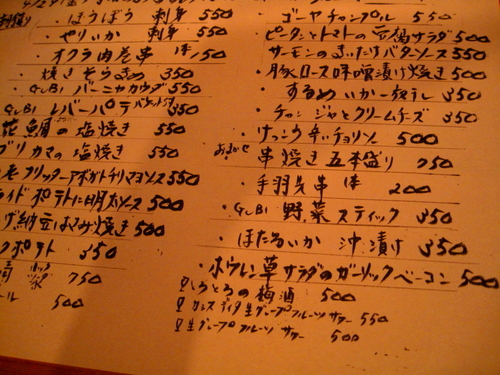 ・ほうぼう 刺身 550
・やりいか 刺身 550
オクラ肉巻串 1本 150
・焼きそらまめ 350
GUBI バーニャカウダ 550
GUBI レバーパテ バケット付 350
鯛の塩焼き 550
ブリカマの塩焼き 550
フリッターアボガドチリマヨソース 550
ライドポテトに明太ソース 500
げ納豆はさみ焼き 500
クポテト 350
750
ール 500
ゴーヤチャンプル 550
ピータンとトマトの豆腐サラダ 500
サーモンの バタソース 550
・豚ロース味噌漬け焼き 500
・するめいか一夜干し 350
・チャンジャとクリームチーズ 350
・けっこう辛いチョリソー 500
おまかせ 串焼き五本盛り 750
・手羽先串 1本 200
・GUBI 野菜スティック 350
・ほたるいか 沖漬け 350
・ホウレン草サラダのガーリックベーコン 500
とろの梅酒 500
生グレープフルーツサワー 550
生グレープフルーツサワー 500